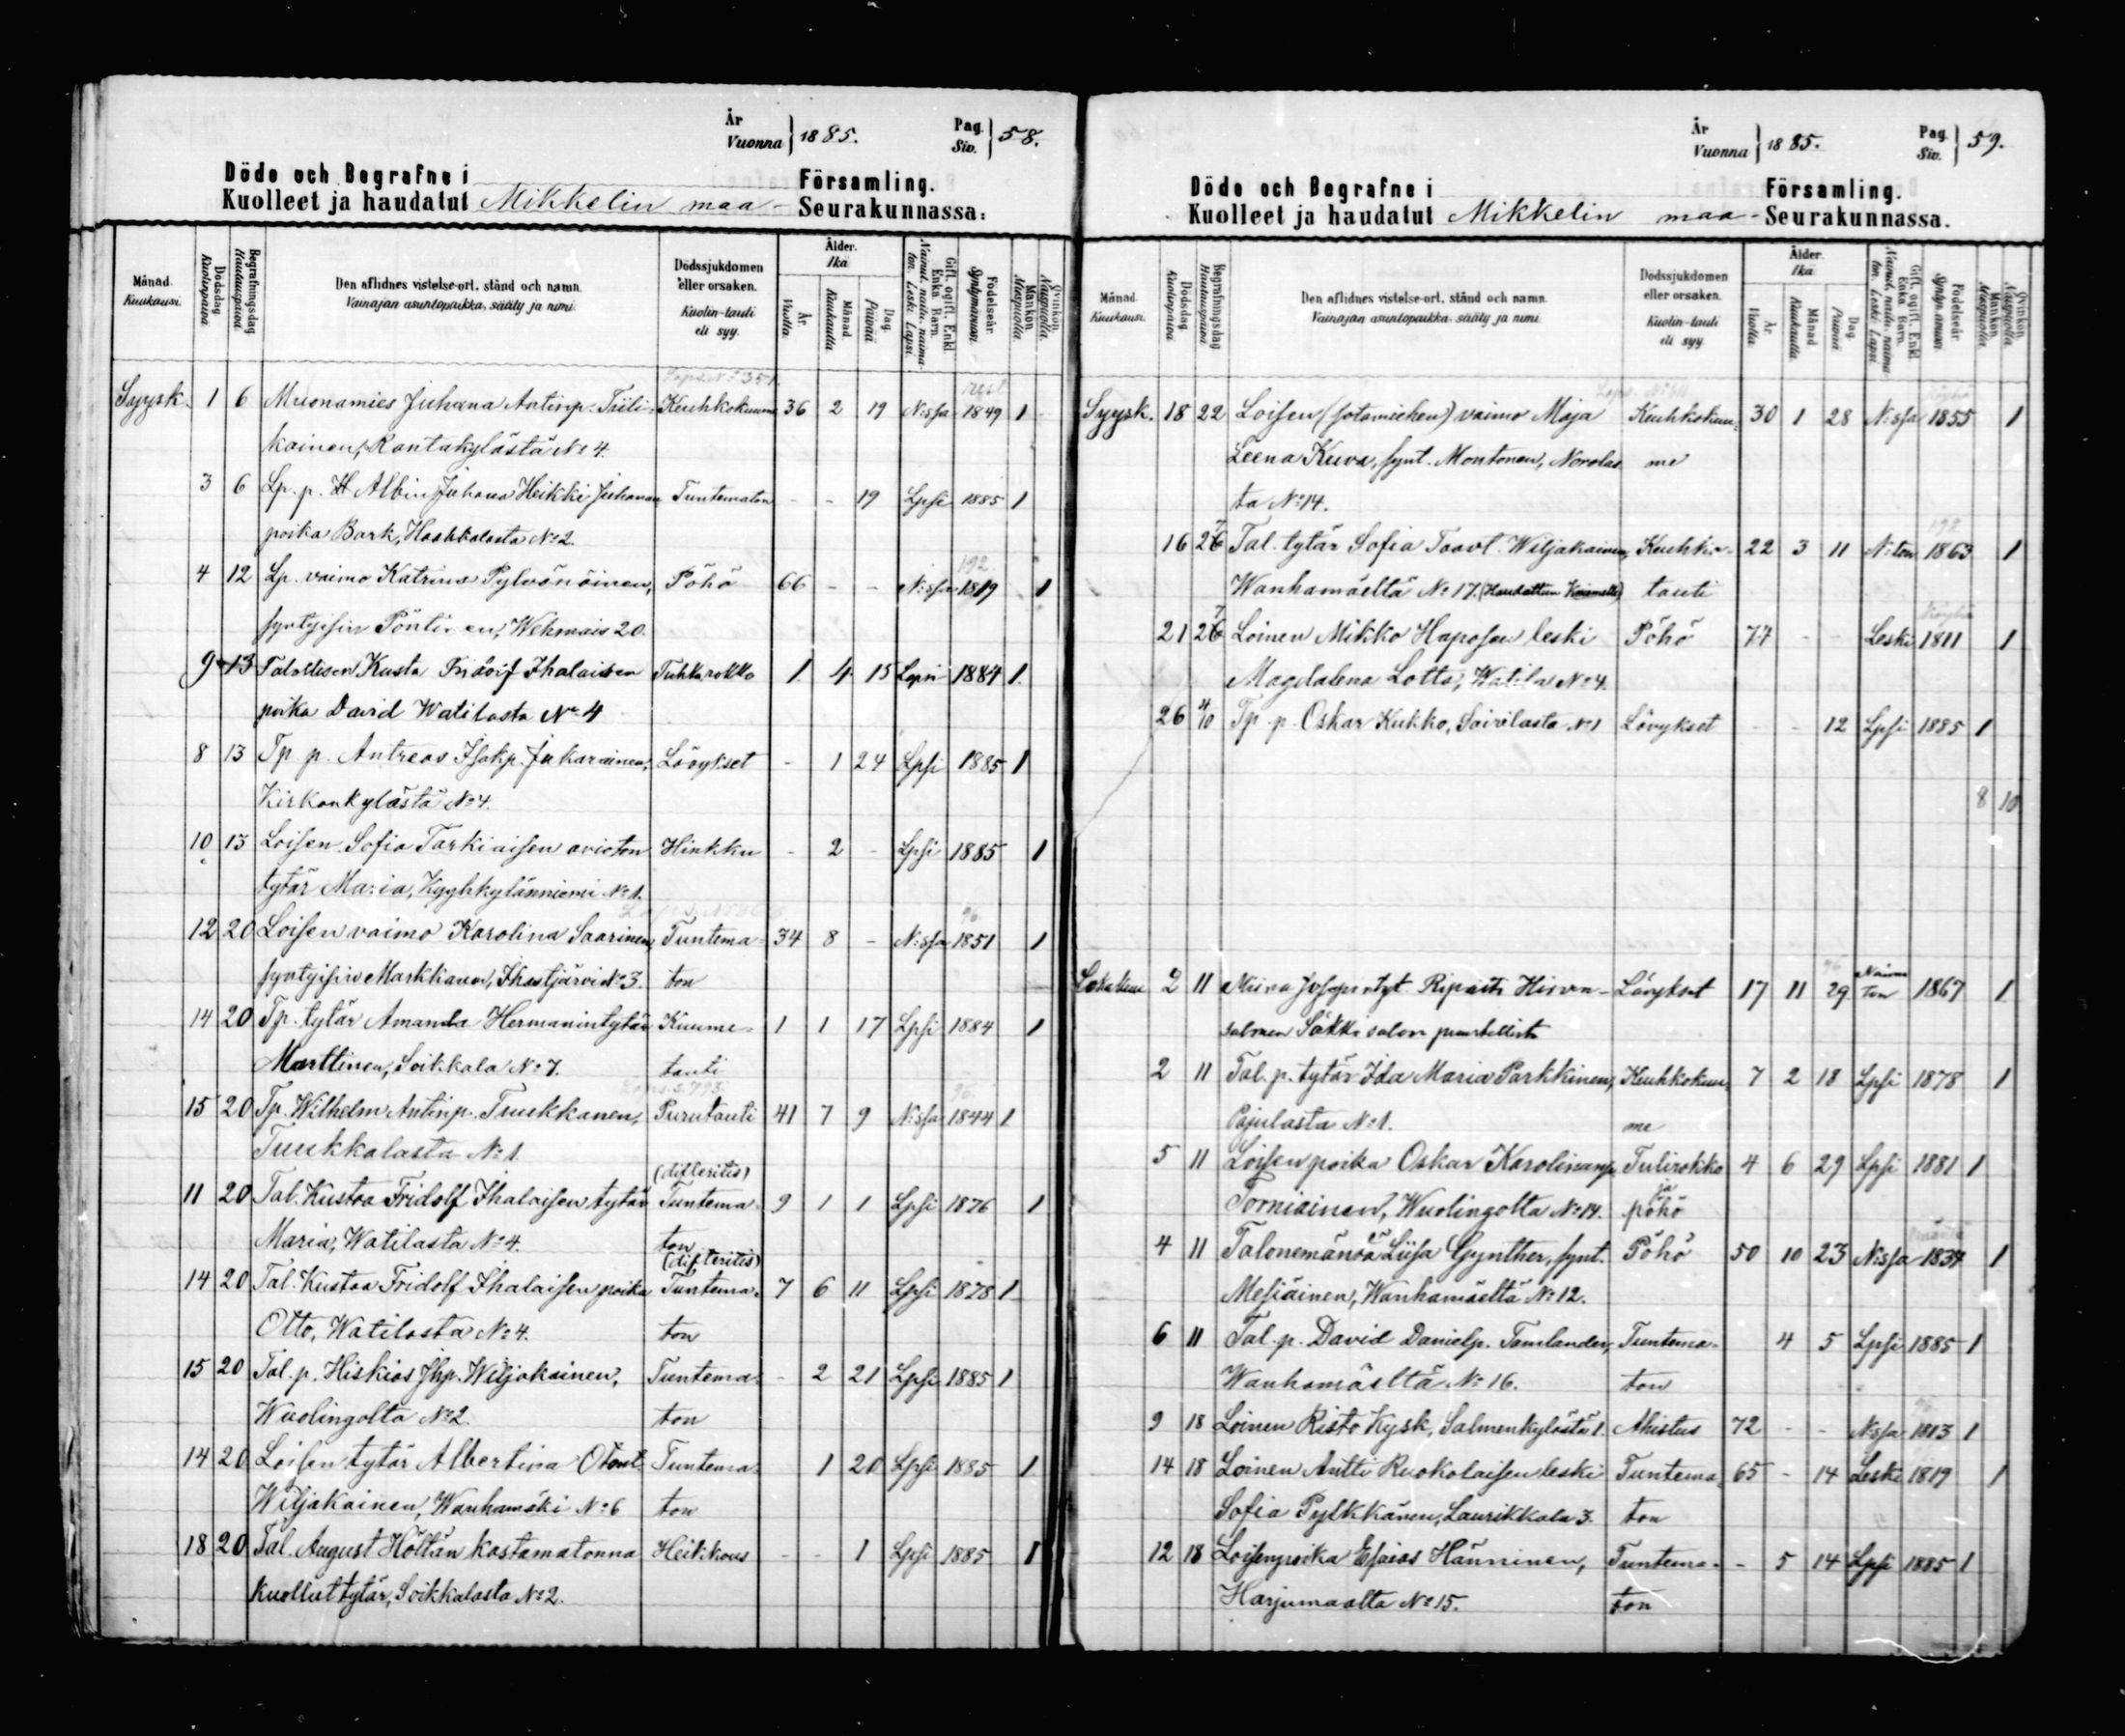 År
Vuonna } 1885.
Pag.
Siv. } 58.
Döde och Begrafne i Församling.
Kuolleet ja haudatut Mikkelin maa- Seurakunnassa:
Månad. Kuukausi.
Dödsdag. Kuolinpäivä.
Begrafningsdag. Hautauspäivä.
Den aflidnes vistelse-ort, stånd och namn.
Vainajan asuntopaikka, sääty ja nimi.
Dödssjukdomen eller orsaken.
Kuolin-tauti eli syy.
Ålder. Ikä.
År. Vuotta.
Månad. Kuukautta.
Dag. Päivää.
Gift, ogift, Enkl. Enka. Barn.
Nainut, naim. naimaton. Leski. Lapsi.
Födelseår. Syntymävuosi.
Mankön. Miespuolia.
Qvinkön. Naispuolia.
Syysk. 1 6 Muonamies Juhana Antinp. Tiili- Keuhkokuume 36 2 19 N:ssa 1849 1
kainen, Rantakylästä No 4.
3 6 Lp. p. Albin Juhana Heikki Juhanan Tuntematon - - 19 Lpsi 1885 1
poika Bark, Haahkalasta No 2.
4 12 Lp. vaimo Katrina Pylvänäinen, Pöhö 66 - - N:ssa 1819 1
syntyisin Pöntinen, Wehmais 20.
9 13 Talollisen Kusta Fridolf Ihalaisen Tuhkarokko 1 4 15 Lapsi 1884 1.
poika David Watilasta No 4
8 13 Tp p. Antreas Isakp. Jukarainen, Lävykset - 1 24 Lpsi 1885 1
Kirkonkylästä No 4.
10 13 Loisen Sofia Tarkiaisen avioton Hinkku - 2 - Lpsi 1885 1
tytär Maria, Kyyhkylänniemi No 1.
12 20 Loisen vaimo Karolina Saarinen, Tuntema- 34 8 - N:ssa 1851 1
syntyisin Markkanen, Ihastjärvi No 3. ton
14 20 Tp. tytär Amanda Hermanintytär Kuume- 1 1 17 Lpsi 1884 1
Marttinen, Soikkala No 7. tauti
15 20 Tp. Wilhelm Antinp. Tuukkanen, Purutauti 41 7 9 N:ssa 1844 1
Tuukkalasta No 1.
(difteritis)
11 20 Tal. Kustaa Fridolf Ihalaisen tytär Tuntema- 9 1 1 Lpsi 1876 1
Maria, Watilasta No 4. ton
(difteritis)
14 20 Tal. Kustaa Fridolf Ihalaisen poika Tuntema- 7 6 11 Lpsi 1878 1
Otto, Watilasta No 4. ton
15 20 Tal. p. Hiskias Jhp. Wiljakainen, Tuntema- - 2 21 Lpsi 1885 1
Wuolingolta No 2. ton
14 20 Loisen tytär Albertina Otont. Tuntema- 1 20 Lpsi 1885 1
Wiljakainen, Wanhamäki No 6 ton
18 20 Tal. August Höltän kastamatonna Heikkous - - 1 Lpsi 1885 1
kuollut tytär, Soikkalasta No 2.
År
Vuonna } 1885.
Pag.
Siv. } 59.
Döde och Begrafne i Församling.
Kuolleet ja haudatut Mikkelin maa- Seurakunnassa.
Månad. Kuukausi.
Dödsdag. Kuolinpäivä.
Begrafningsdag. Hautauspäivä.
Den aflidnes vistelse-ort, stånd och namn.
Vainajan asuntopaikka, sääty ja nimi.
Dödssjukdomen eller orsaken.
Kuolin-tauti eli syy.
Ålder. Ikä.
År. Vuotta.
Månad. Kuukautta.
Dag. Päivää.
Gift, ogift, Enkl. Enka. Barn.
Nainut, naim. naimaton. Leski. Lapsi.
Födelseår. Syntymävuosi.
Mankön. Miespuolia.
Qvinkön. Naispuolia.
Syysk. 18 22 Loisen (sotamiehen) vaimo Maja Keuhkokuu- 30 1 28 N:ssa 1855 1
Leena Kuva, synt. Montonen, Norolas me
ta No 14.
16 27 Tal. tytär Sofia Taavt. Wiljakainen, Keuhko- 22 3 11 N:ton 1863 1
Wanhamäeltä No 17. (Haudattu) tauti
21 27 Loinen Mikko Haposen leski Pöhö 74 - - Leski 1811 1
Magdalena Lotta, Watila No 4.
26 4/10 Tp. p. Oskar Kukko, Sairilasta No 1 Lävykset - - 12 Lpsi 1885 1
8 10
Lokakuu 2 11 Miina Josepintyt. Ripatti Hirven- Lävykset 17 11 29 Naimaton 1867 1
salmen Säkki salon puustellista
2 11 Tal. p. tytär Ida Maria Parkkinen, Keuhkokuu- 7 2 18 Lpsi 1878 1
Pajulasta No 1. me
5 11 Loisen poika Oskar Karolinanp. Tulirokko 4 6 29 Lpsi 1881 1
Torniainen, Wuolingolta No 14. ja pöhö
4 11 Talonemäntä Liisa Gynther, synt. Pöhö 50 10 23 N:ssa 1834 1
Mesiäinen, Wanhamäeltä No 12.
6 11 Tal. p. David Danielp. Tamlander, Tuntema- 4 5 Lpsi 1885 1
Wanhamäeltä No 16. ton
9 18 Loinen Risto Kysk, Salmenkylästä 1. Ahistus 72 - - N:ssa 1813 1
14 18 Loinen Antti Ruokolaisen leski Tuntema- 65 - 14 Leski 1819 1
Sofia Pylkkänen, Laurikkala 3. ton
12 18 Loisenpoika Esaias Hänninen, Tuntema- - 5 14 Lpsi 1885 1
Harjumaalta No 15. ton